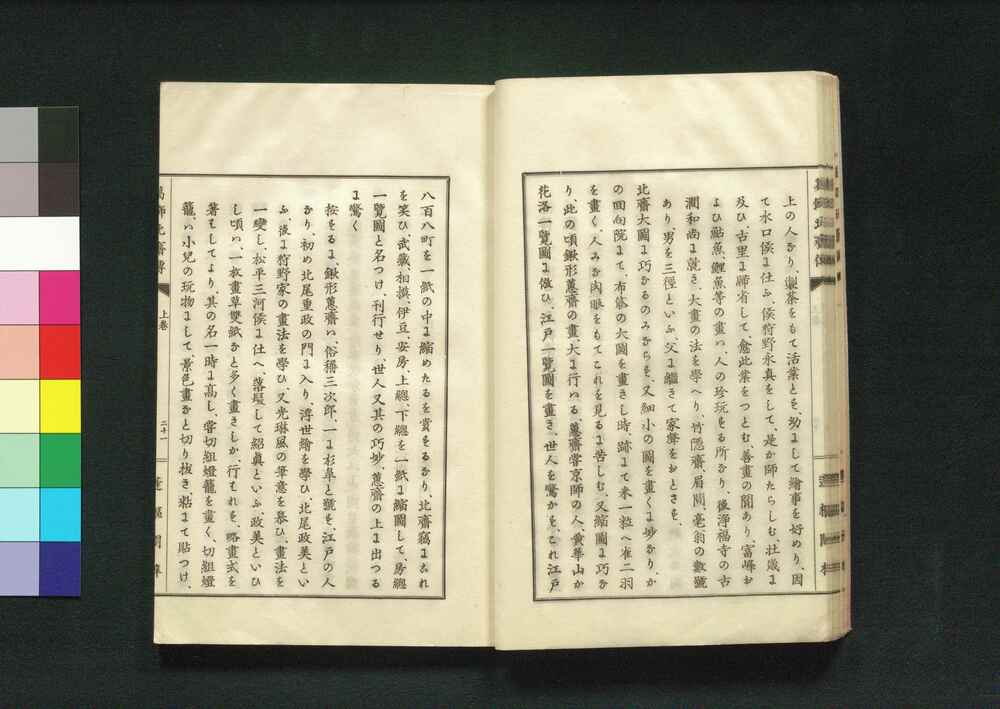 上の人なり、製茶をもて活業とす、幼よして繪事を好めり、因
て水口侯よ仕ふ、侯狩野永真をして、是が師たらしむ、壮歳よ
及ひ、古里よ歸省して、愈此業をつとむ、善畫の聞あり、富峰お
よひ鮎魚、鯉魚等の畫ハ、人の珍玩する所なり、後浄福寺の古
澗和尚よ就き、大畫の法を學へり、竹隠齋、眉間毫翁の數號
あり、男を三徑といふ、父よ繼きて家聲をおとさす、
北齋大圖よ巧なるのみならす、又細小の圖を畫くよ妙なり、か
の回向院よて、布袋の大圖を畫きし時、跡よて米一粒へ雀二羽
を畫く、人みな肉眼をもてこれを見るよ苦しむ、又縮圖よ巧な
り、此の頃鍬形蕙齋の畫、大よ行ハる、蕙齋嘗京師の人、黄華山か
花洛一覽圖よ倣ひ、江戸一覽圖を畫き、世人を驚かす、これ江戸
八百八町を一紙の中よ縮めたるを賞するなり、北齋竊よこれ
を笑ひ、武藏相摸、伊豆、安房、上總、下總を一紙よ縮圖して、房總
一覽圖と名つけ、刊行せり、世人又其の巧妙、蕙齋の上よ出つる
よ驚く
按するよ、鍬形蕙齋ハ、俗稱三次郎、一よ杉皐と號す、江戸の人
なり、初め北尾重政の門よ入り、浮世繪を學ひ、北尾政美とい
ふ、後よ狩野家の畫法を學ひ、又光琳風の筆意を慕ひ、畫法を
一變し、松平三河侯よ仕へ、落髪して紹眞といふ、政美といひ
し頃ハ、一枚畫草雙紙なと多く畫きしか、行ハれす、略畫式を
著ハしてより、其の名一時よ高し、嘗切組燈籠を畫く、切組燈
籠ハ小兒の玩物よして、景色畫なと切り抜き、粘よて貼つけ、
飾北齋傳
上卷
二十一